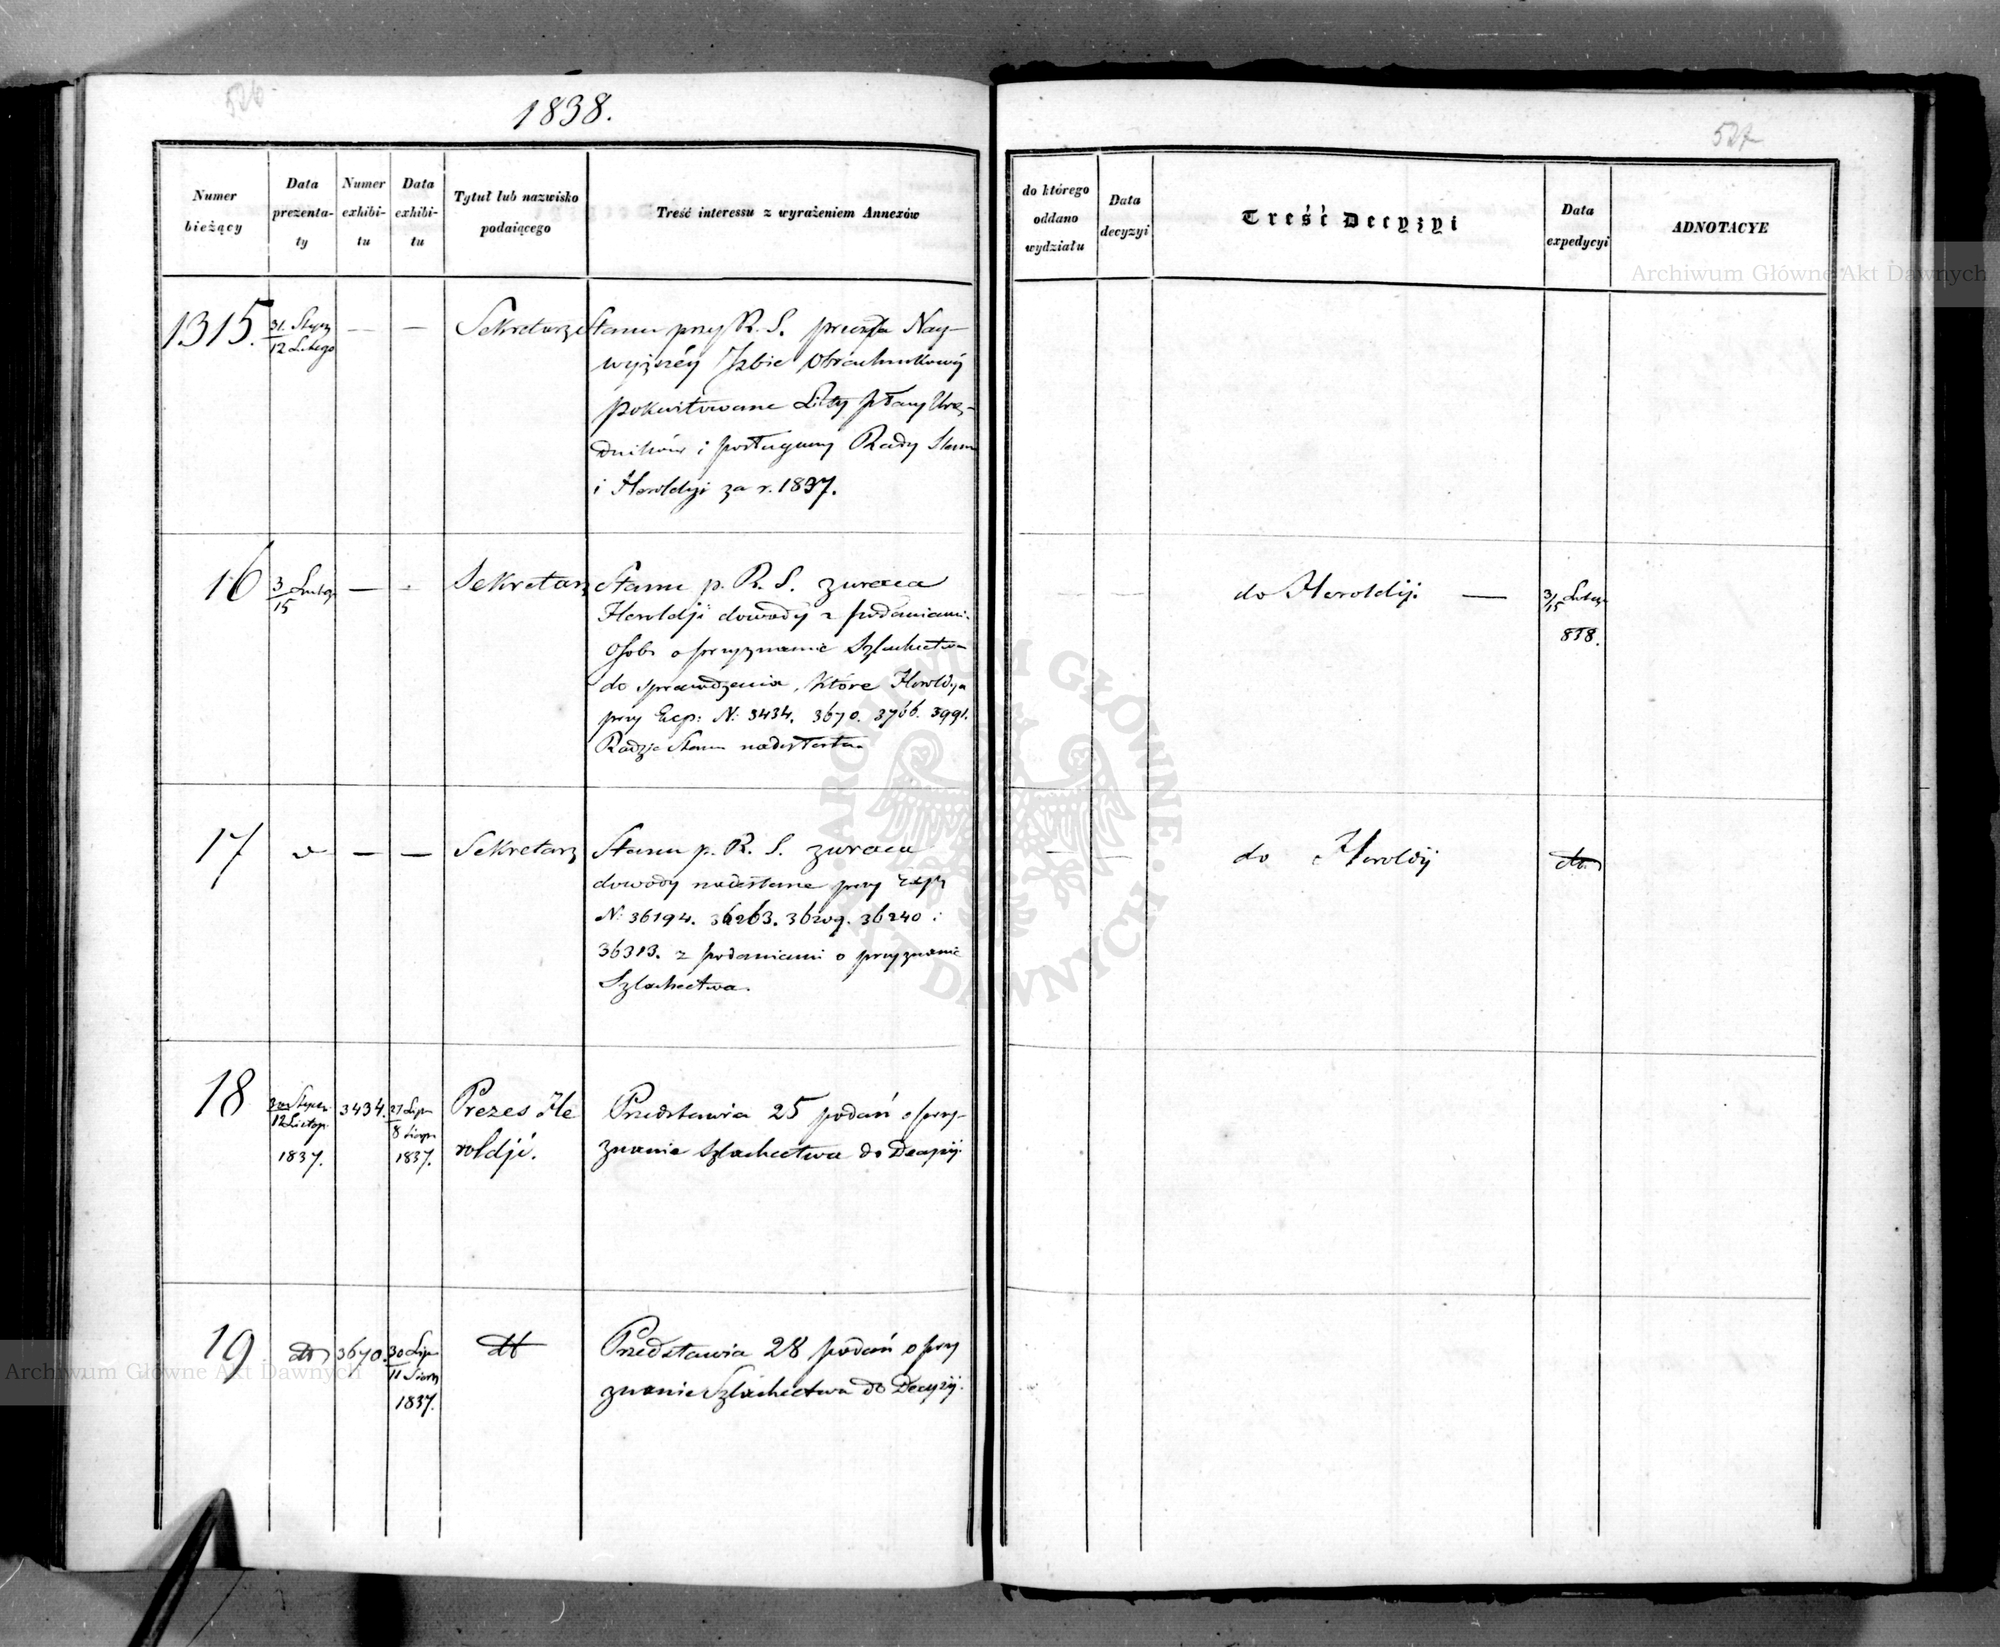 526.
1838.
Numer bieżący
Data prezentaty
Numer exhibitu
Data exhibitu
Tytuł lub nazwisko podaiącego
Treść interessu z wyrażeniem Annexów
1315.
31. Stycz
12 Lutego
— —
Sekretarz Stanu przy R. S. przesyła Nay-
wyższéy Izbie Obrachunkowéy
pokwitowane Listy płacy Urzę-
dników i posługaczy Rady Stanu
i Heroldyi za r. 1837.
16
3 Lutego
15
— -
Sekretarz Stanu p. R. S. zwraca
Heroldji dowody z podaniami
Osób o przyznanie Szlachectwa
do sprawdzenia, które Heroldya
przy Exp: N: 3434. 3670. 3766. 3991.
Radzie Stanu nadesłała.
17
— —
Sekretarz Stanu p. R. S. zwraca
dowody nadesłane przy Exp
N: 36194. 36263. 36209. 36240 i
36313. z podaniami o przyznanie
Szlachectwa.
18
12 Listop.
1837.
3434.
27 Lipa
8 Sierp
1837.
Prezes He
roldji.
Przedstawia 25 podań o przy-
znanie Szlachectwa do Decyzji.
19
dto
3670.
30 Lip
11 Sierp
1837.
dto
Przedstawia 28 podań o przy
znanie Szlachectwa do Decyzji.
527
do którego oddano wydziału
Data decyzyi
Treść Decyzyi
Data expedycyi
ADNOTACYE
do Heroldyi. —
3/15 Lutego
838.
do Heroldyi
dto
Archiwum Główne Akt Dawnych
Archiwum Główne Akt Dawnych
ARCHIWUM GŁÓWNE AKT DAWNYCH